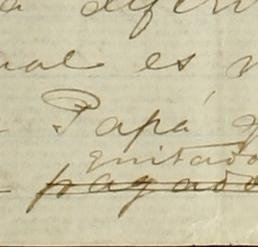 a difer
ual es
Papá
quitado
pagado